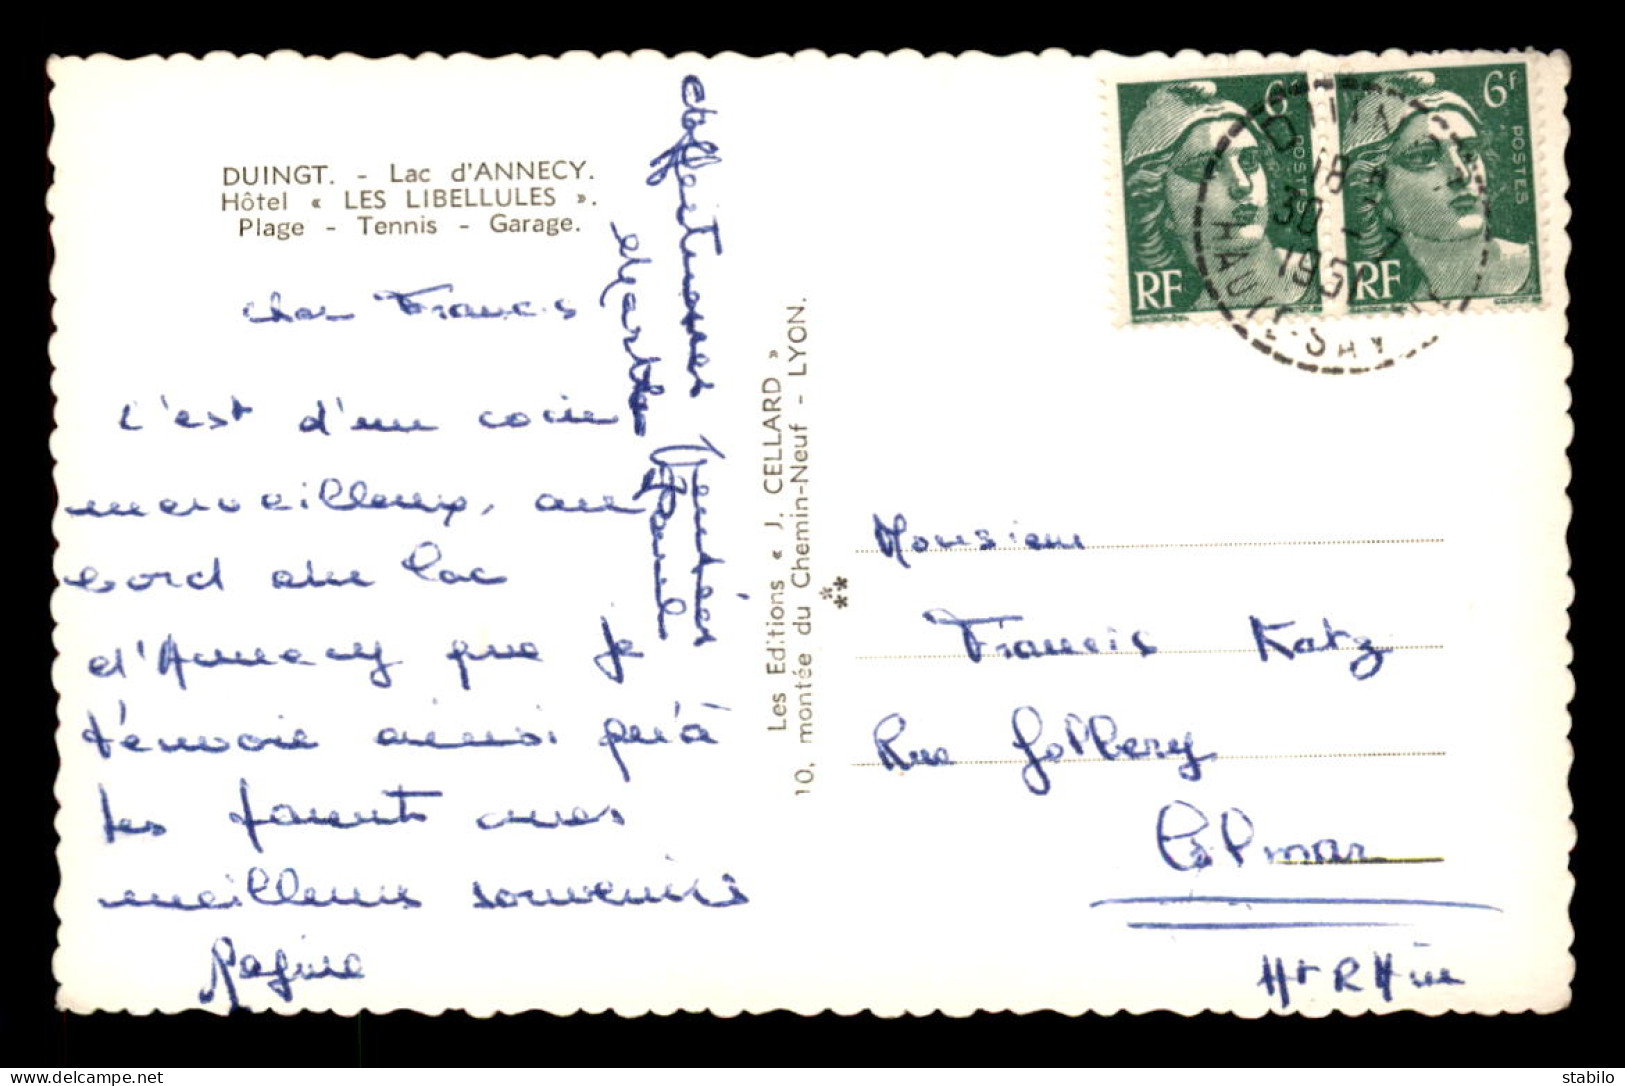 DUINGT. - Lac d'ANNECY.
Hôtel « LES LIBELLULES ».
Plage - Tennis - Garage.
cher Francis
C'est d'un coin
merveilleux, au
bord du lac
d'Annecy que je
t'envoie ainsi qu'à
tes parents mes
meilleurs souvenirs
Régine
affectueuses pensées
Marthe Paul
Les Editions « J. CELLARD »
10, montée du Chemin-Neuf - LYON.
6f
POSTES
RF
6f
POSTES
RF
DUINGT
18
30 -7
1951
HAUTE-SAVOIE
Monsieur
Francis Katz
Rue Golbery
Colmar
Ht Rhin
delcampe.net
stabilo